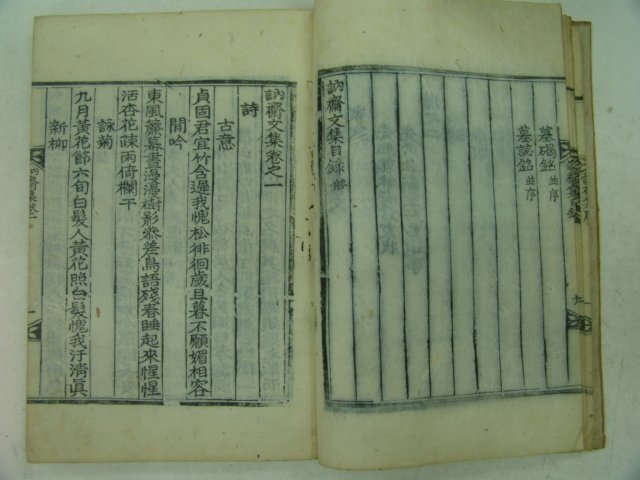 墓碣銘並序
墓誌銘並序
訥齋文集目錄終
訥齋文集卷之一
詩
古意
貞固君宜竹含遲我愧松徘徊歲且暮不願媚相容
閒吟
東風簾幕晝漫漫樹影參差鳥語殘春睡起來惺惺
活杏花疎雨倚欄干
詠菊
九月黃花節六旬白髮人黃花照白髮愧我汙淸眞
新柳